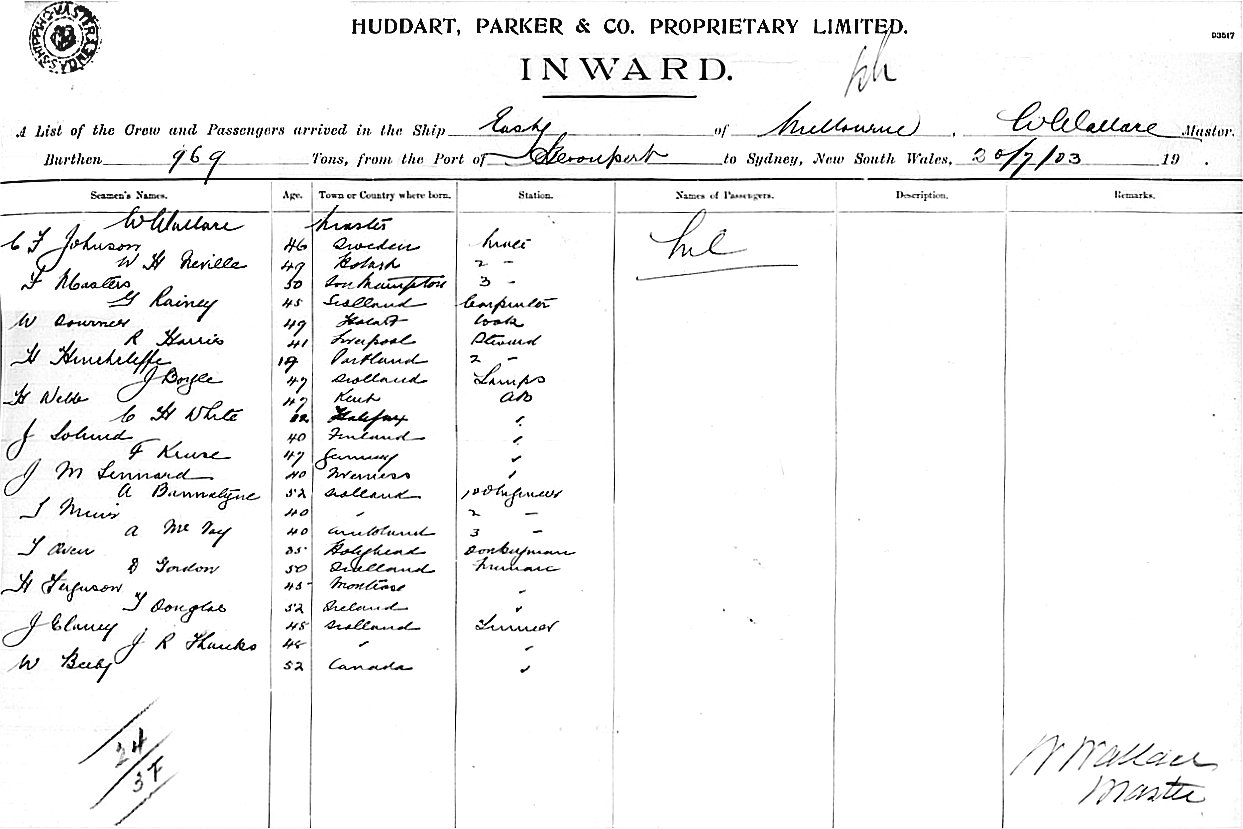 SHIPPING MASTER SYDNEY
HUDDART, PARKER & CO. PROPRIETARY LIMITED.
D3517
INWARD.
A List of the Crew and Passengers arrived in the Ship of Melbourne, W Wallace Master.
Burthen 969 Tons, from the Port of Devonport to Sydney, New South Wales, 20/7/03 19 .
Seamen's Names. Age. Town or Country where born. Station. Names of Passengers. Description. Remarks.
W Wallace Master
C F Johnson 46 Sweden Mate Nil
W H Neville 49 Hobart 2 -
F Masters 50 Southampton 3 -
G Rainey 45 Scotland Carpenter
W 49 Hobart Cook
R Harris 41 Liverpool Steward
H Hinchcliffe 19 Portland 2 -
J Boyle 47 Scotland Lamps
H Webb 47 Kent AB
C H White Halifax "
J 40 Finland "
F Kruse 47 Germany "
J M Lennard 40 Inverness "
A 52 Scotland 1st Engineer
T Muir 40 " 2 -
A 40 Auckland 3 -
T Owen 35 Holyhead Donkeyman
D Gordon 50 Scotland Fireman
H Ferguson 45 Montrose "
T Douglas 52 Ireland "
J Clancy 45 Scotland Trimmer
J R 45 " "
W 52 Canada "
24
W Wallace
Master